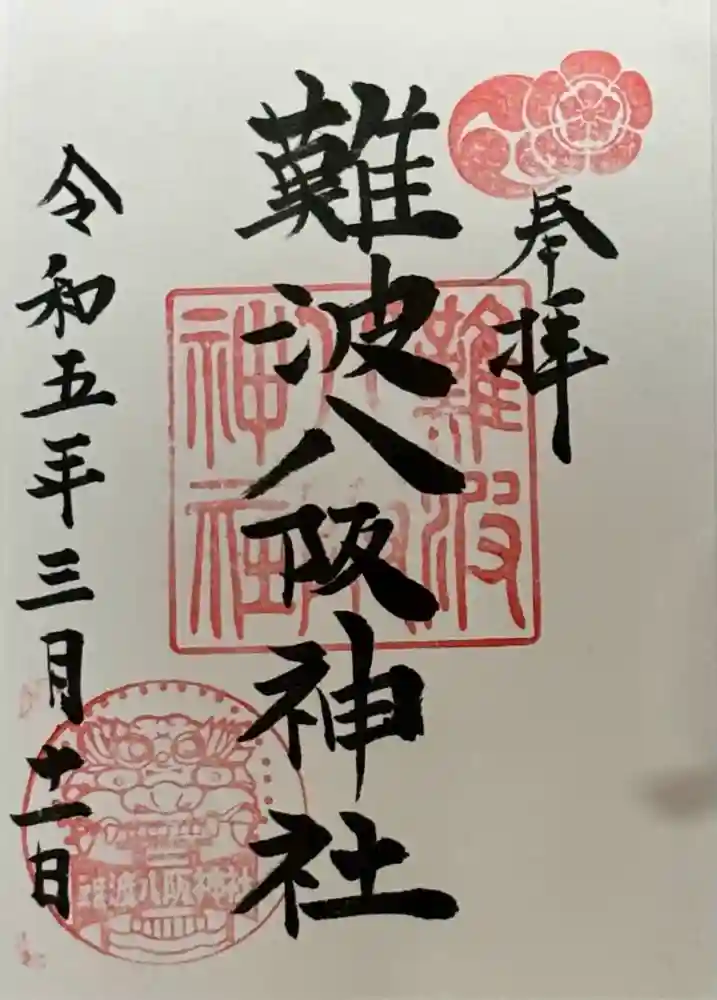 奉拝
難波八阪神社
難波
八阪
神社
令和五年三月十一日
難波八阪神社